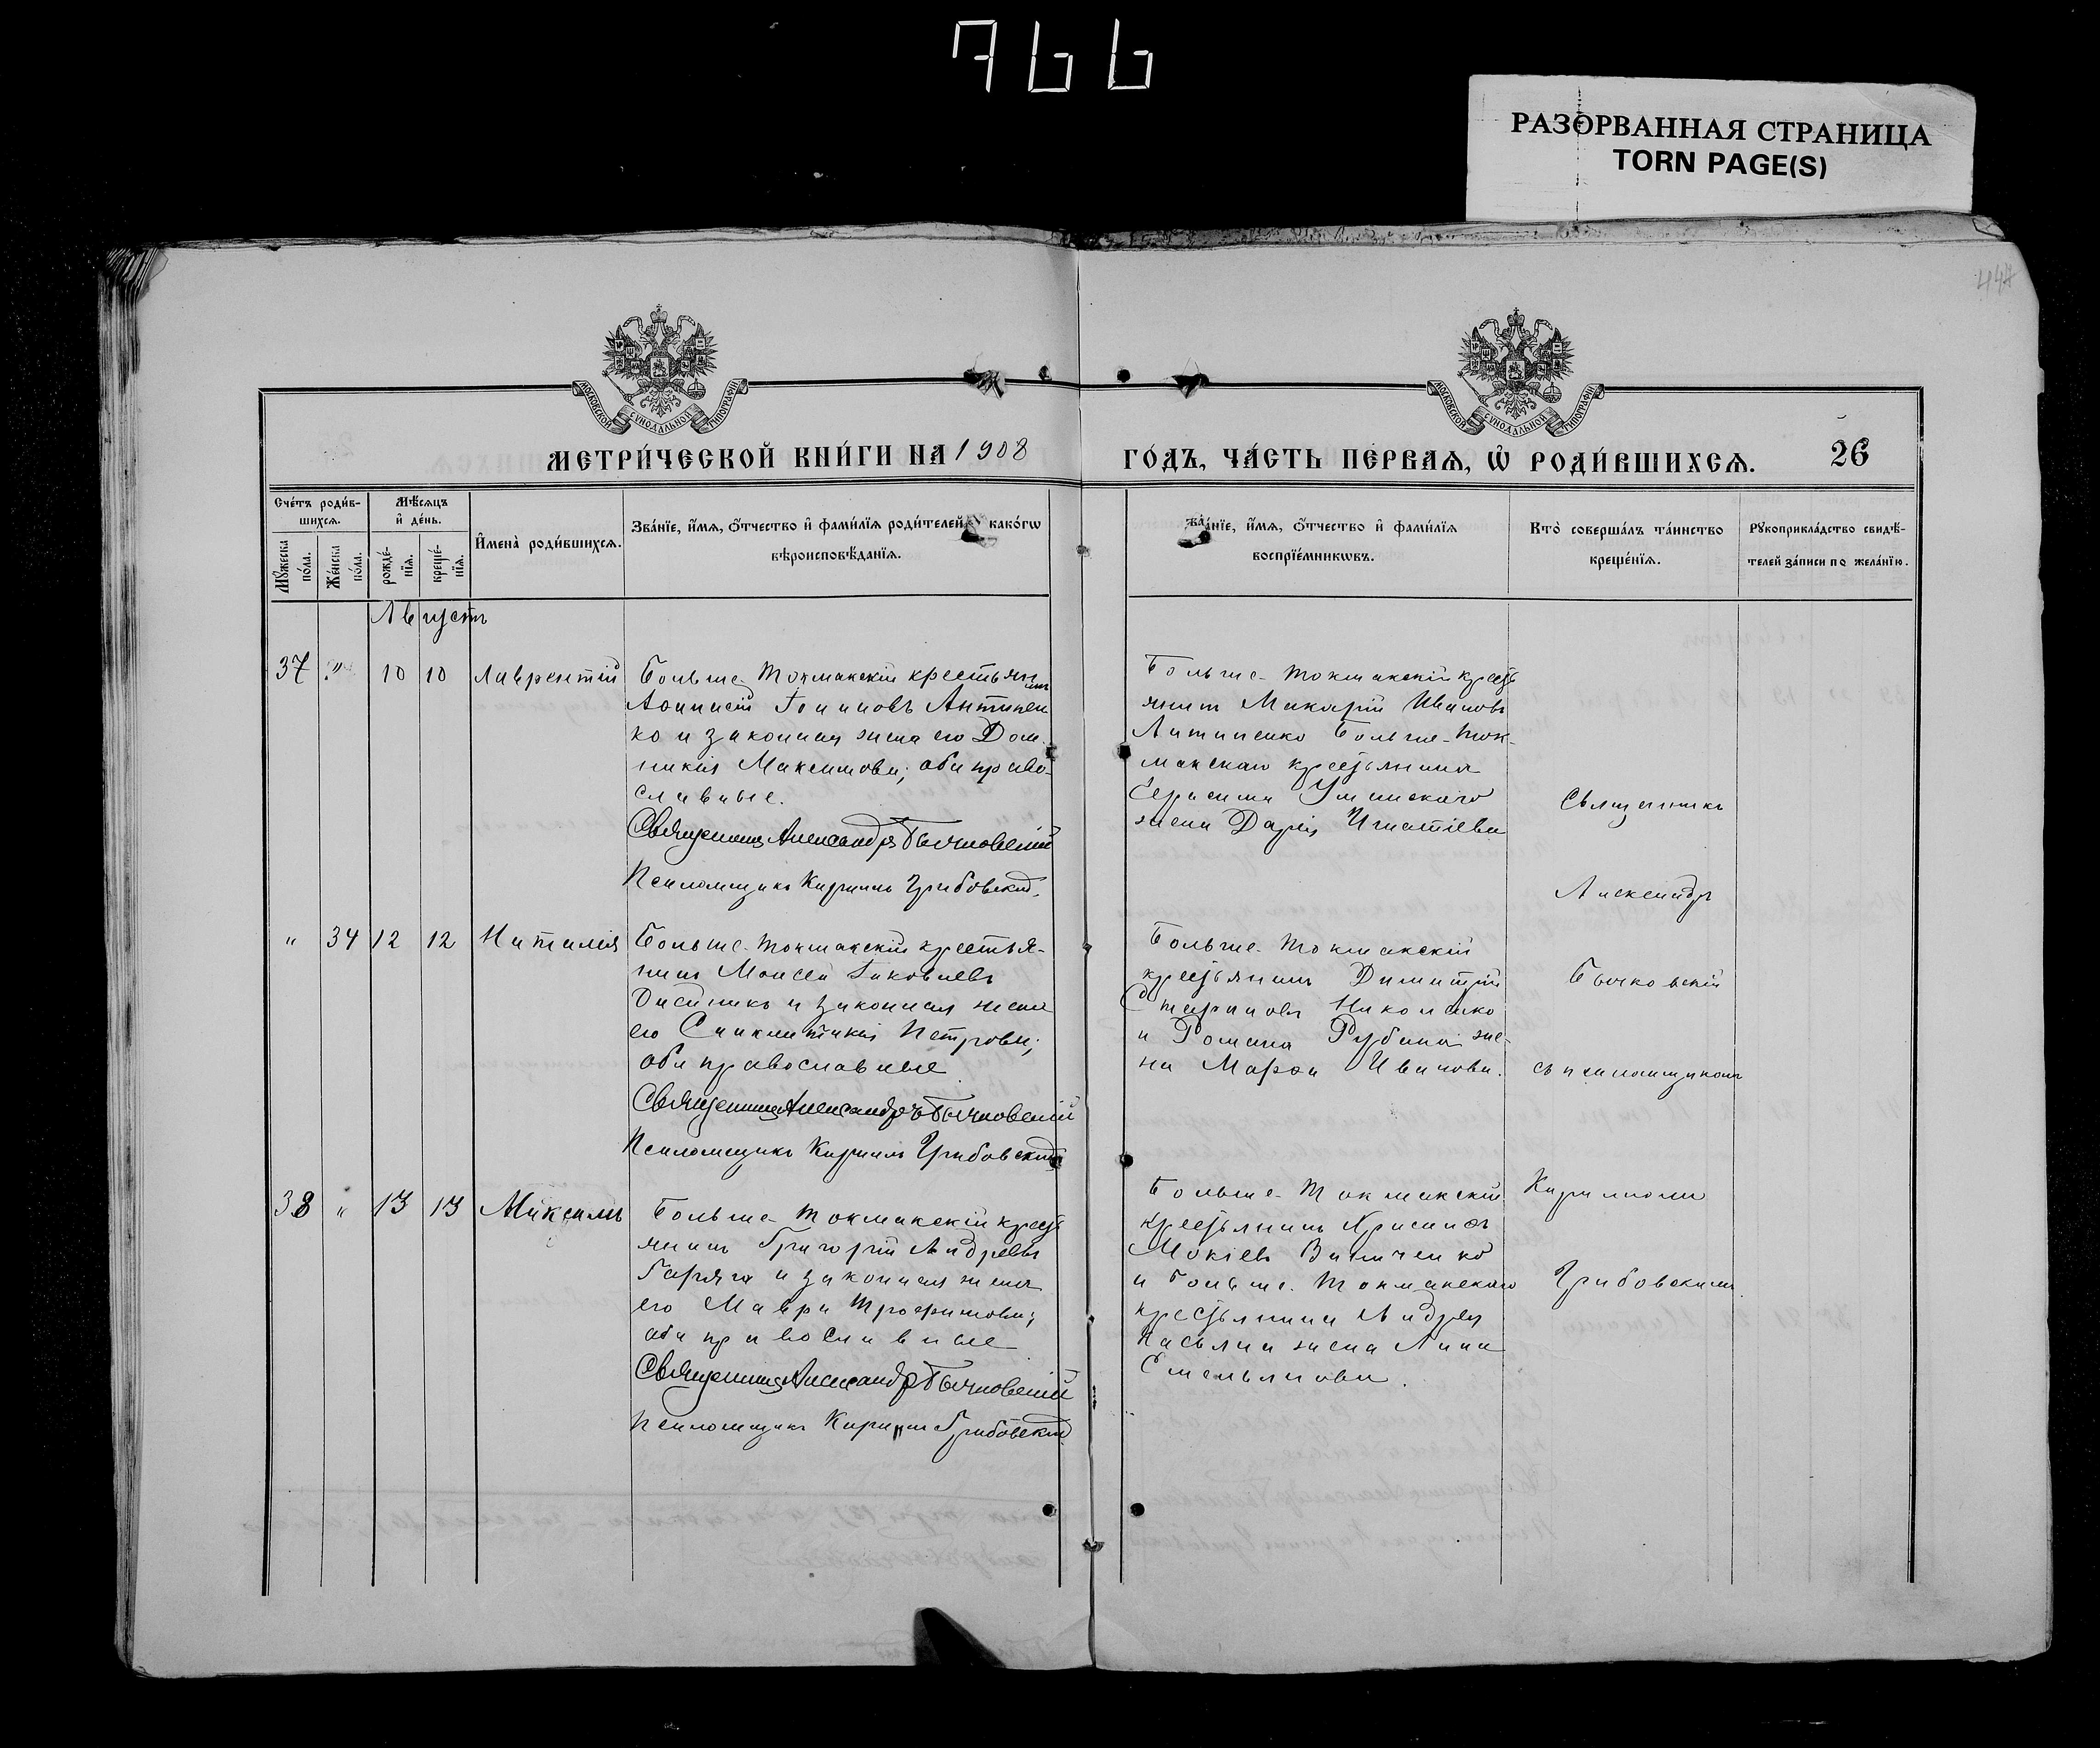 766
РАЗОРВАННАЯ СТРАНИЦА
TORN PAGE(S)
447
МОСКОВСКОЙ СУНОДАЛЬНОЙ ТИПОГРАФІИ
МОСКОВСКОЙ СУНОДАЛЬНОЙ ТИПОГРАФІИ
МЕТРИ́ЧЕСКОЙ КНИ́ГИ НА 1908
ГО́ДЪ, ЧА́СТЬ ПЕ́РВАѦ, Ѡ҆ РОДИ́ВШИХСѦ. 26
Сче́тъ роди́в-
шихсѧ.
Мꙋ́жеска по́ла.
Же́нска по́ла.
Мѣ́сѧцъ
и҆ де́нь.
рожде́-
нїѧ.
креще́-
нїѧ.
И҆мена̀ роди́вшихсѧ.
Зва́нїе, и҆́мѧ, ѻ҆́тчество и҆ фами́лїѧ роди́телей, како́гѡ
вѣроисповѣ́данїѧ.
Зва́нїе, и҆́мѧ, ѻ҆́тчество и҆ фами́лїѧ
воспрїе́мникѡвъ.
Кто̀ соверша́лъ та́инство
креще́нїѧ.
Рꙋкоприкла́дство свидѣ́-
телей за́писи по жела́нїю.
Августъ
37 " 10 10 Лаврентій
Больше-Токмакскій крестьянинъ
Аѳанасій Іоанновъ Антипен
ко и законная жена его Дом-
никія Максимова; оба право-
славные.
Священникъ Александръ Бычковскій
Псаломщикъ Кириллъ Грибовскій.
Больше-Токмакскій кресть
янинъ Макарій Ивановъ
Антипенко Больше-Ток-
макскаго крестьянина
Герасима
жена Дарія Игнатіева
Священникъ
Александръ
Бычковскій
съ псаломщикомъ
Кирилломъ
Грибовскимъ.
" 34 12 12 Наталія
Больше-Токмакскій крестья-
нинъ Моисей Іаковлевъ
и законная жена
его Синклитикія Петрова;
оба православные
Священникъ Александръ Бычковскій
Псаломщикъ Кириллъ Грибовскій
Больше-Токмакскій
крестьянинъ Димитрій
Николаенко
и Романа Рубана же-
на Марѳа Иванова.
38 " 13 13 Максимъ
Больше-Токмакскій кресть
янинъ Григорій Андреевъ
Гаряга и законная жена
его Мавра Трофимова;
оба православные
Священникъ Александръ Бычковскій
Псаломщикъ Кириллъ Грибовскій
Больше-Токмакскій
крестьянинъ Хрисанфъ
Мокіевъ Величенко
и Больше-Токмакскаго
крестьянина Андрея
жена Анна
Емельянова.